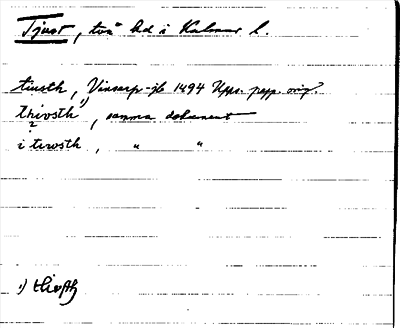 Tjust, två hd i Kalmar l.
tiusth, Vinsarp-jb 1494 Upps. papp. orig.
thiosth 1), samma dokument
?
i tiwsth, " "
1) thiosth